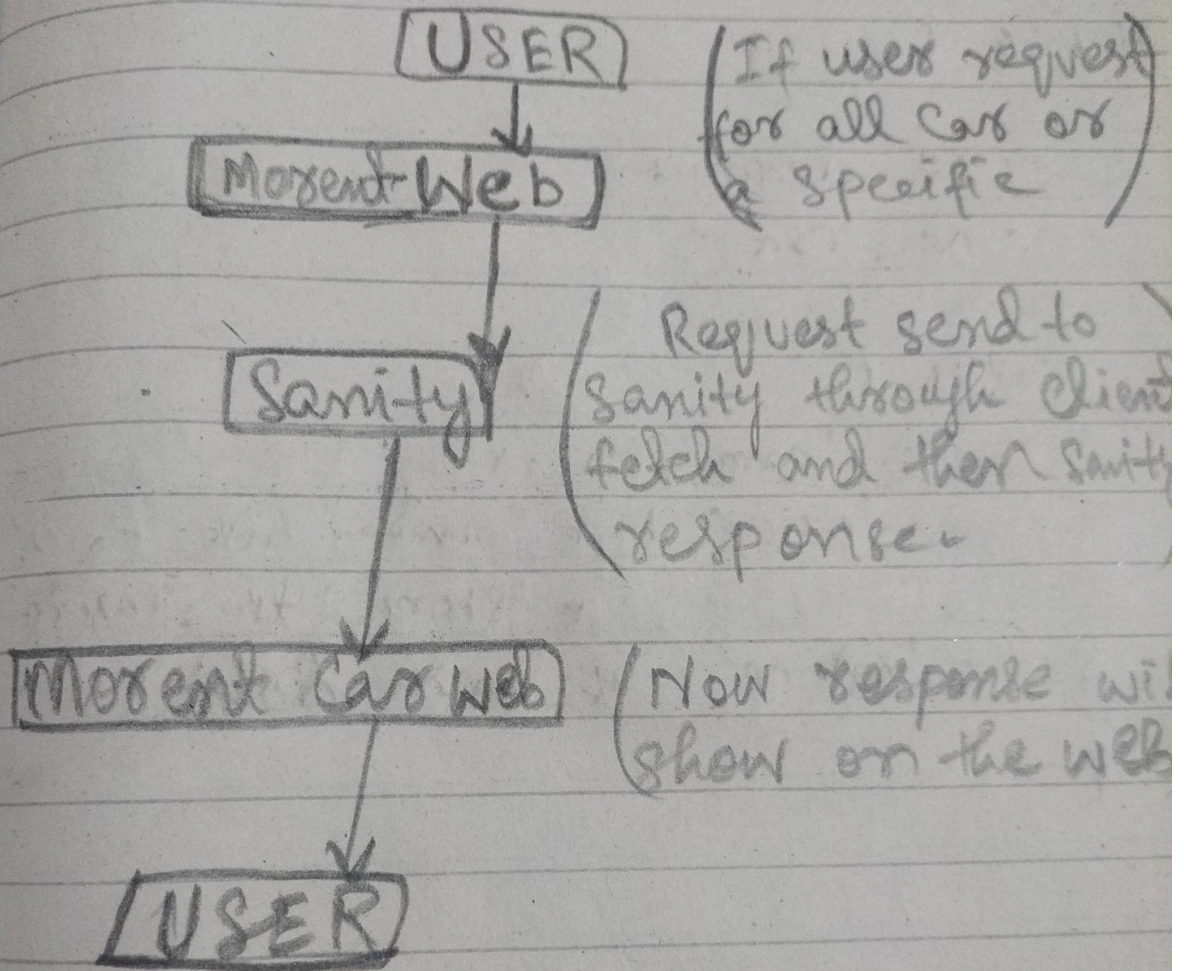 USER
(If user request
for all Car or
a specific)
Morent Web
Request send to
Sanity through client
fetch and then Sanity
response.
Sanity
Morent Car Web
(Now response wi
show on the web
USER